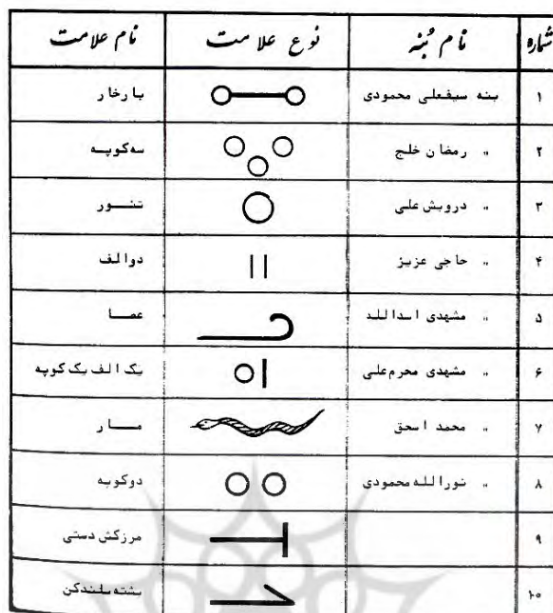 شماره نام بُنه نوع علامت نام علامت
۱ بنه سیفعلی محمودی بارخار
۲ " رمضان خلج سه‌کوپه
۳ " درویش علی تنـــور
۴ " حاجی عزیز دوالف
۵ " مشهدی اسدالله عصــا
۶ " مشهدی محرم‌علی یک الف یک کوپه
۷ " محمد اسحق مـــار
۸ " نورالله محمودی دوکوپه
۹ مرزکش دستی
۱۰ پشته بلندکن